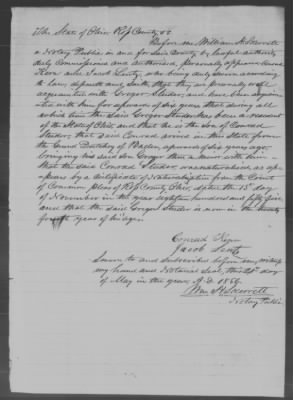 The State of Ohio Ross County ss
Before me William H. Skerrett
a Notary Public in and for said County by lawful authority
duly Commissioned and Authorised, personally appeared Conrad
Kern and Jacob Lentz, who being duly sworn according
to law depose and Saith that they are personally well
acquainted with Gregor Studer, and have been acquain-
ted with him for upwards of six years that during all
which time the said Gregor Studer has been a resident
of the State of Ohio, and that he is the Son of Conrad
Studer, that said Conrad arrived in this State from
the Grand Dutchy of Baden, upwards of six years ago,
bringing his said Son Gregor then a minor with him
that the said Conrad Studer, was naturalised as ap-
pears by a Certificate of Naturalization from the Court
of Common pleas of Ross County Ohio, dated the 15th day
of November in the year eighteen hundred and fifty five
and that the said Gregor Studer is now in the twenty
fourth year of his age.
Conrad Kern
Jacob Lentz
Sworn to and Subscribed before me, witness
my hand and Notarial Seal, this 21st day
of May in the year A.D. 1856.
Wm H Skerrett
Notary Public